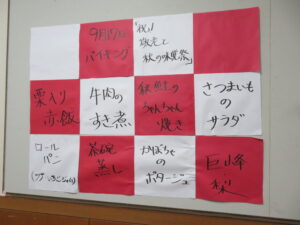 9月19日
バイキング
「祝い
敬老と
秋の味覚祭」
栗入り
赤飯
牛肉の
すき煮
秋鮭の
ちゃんちゃん
焼き
さつまいも
の
サラダ
ロール
パン
茶碗
蒸し
かぼちゃ
の
ポタージュ
巨峰
梨